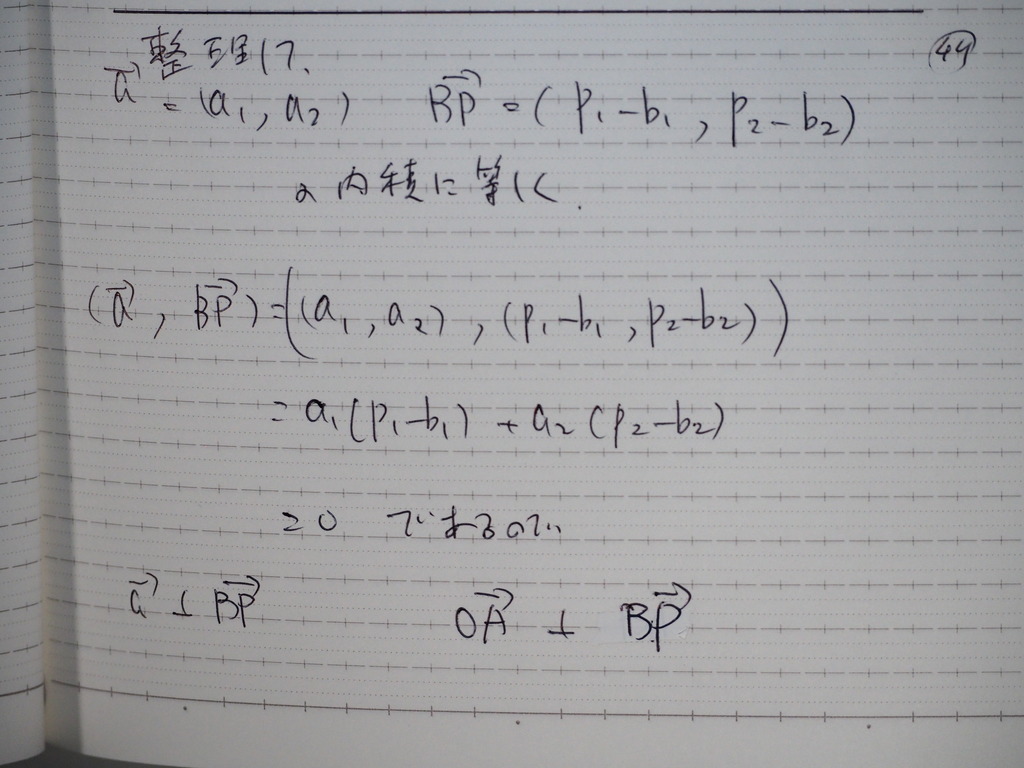 整理して、
㊹
a⃗ = (a₁, a₂)　BP⃗ = (p₁−b₁, p₂−b₂)
の内積に等しく.
(a⃗, BP⃗) = ((a₁, a₂), (p₁−b₁, p₂−b₂))
= a₁(p₁−b₁) + a₂(p₂−b₂)
= 0 であるので
a⃗ ⊥ BP⃗　OA⃗ ⊥ BP⃗